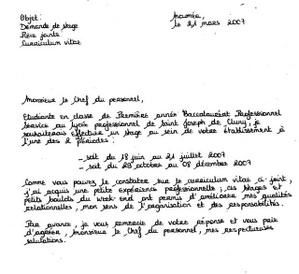 Objet:
Demande de stage
Pièce jointe
Curriculum vitae
Nouméa,
le 21 mars 2007
Monsieur le Chef du personnel,
Etudiante en classe de Première année Baccalauréat Professionnel
Service au lycée professionnel de Saint Joseph de Cluny, je
souhaiterais effectuer un stage au sein de votre établissement à
l'une des 2 périodes:
- soit du 18 juin au 21 juillet 2007
- soit du 29 octobre au 08 décembre 2007
Comme vous pouvez le constater sur le curriculum vitae ci-joint,
j'ai acquis une petite expérience professionnelle; ces stages et
petits boulots du week end ont permis d'améliorer mes qualités
relationnelles, mon sens de l'organisation et des responsabilités.
Par avance, je vous remercie de votre réponse et vous prie
d'agréer, Monsieur le Chef du personnel, mes respectueuses
salutations.